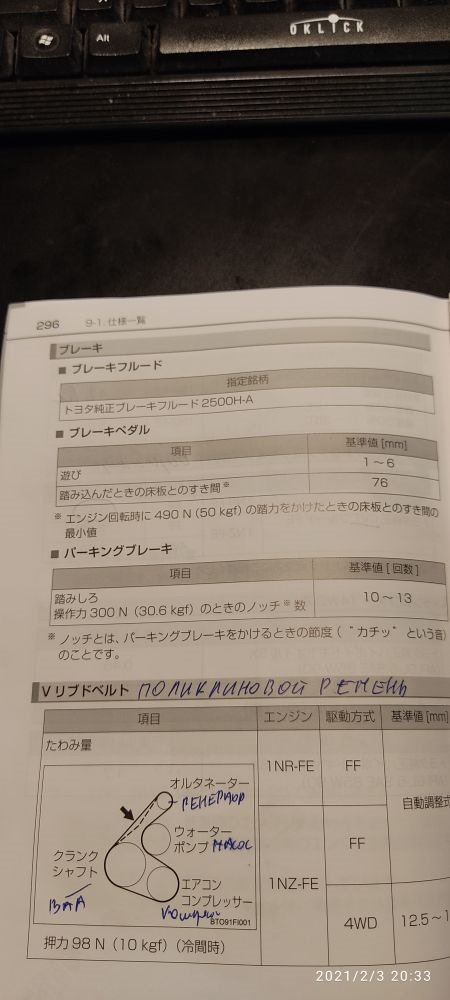 Alt
OKLICK
296 9-1. 仕様一覧
ブレーキ
■ ブレーキフルード
指定銘柄
トヨタ純正ブレーキフルード 2500H-A
■ ブレーキペダル
項目 基準値 [mm]
遊び 1～6
踏み込んだときの床板とのすき間※ 76
※ エンジン回転時に 490 N (50 kgf) の踏力をかけたときの床板とのすき間の
最小値
■ パーキングブレーキ
項目 基準値 [回数]
踏みしろ
操作力 300 N (30.6 kgf) のときのノッチ※数 10～13
※ ノッチとは、パーキングブレーキをかけるときの節度 ("カチッ" という音)
のことです。
V リブドベルト ПОЛИКЛИНОВОЙ РЕМЕНЬ
項目 エンジン 駆動方式 基準値 [mm]
たわみ量
1NR-FE FF
自動調整式
オルタネーター
ГЕНЕРАТОР
ウォーター
ポンプ НАСОС
FF
クランク
シャフト
ВАЛ
1NZ-FE
エアコン
コンプレッサー
BTO91FI001
4WD 12.5～1
押力 98 N (10 kgf) (冷間時)
2021/2/3 20:33